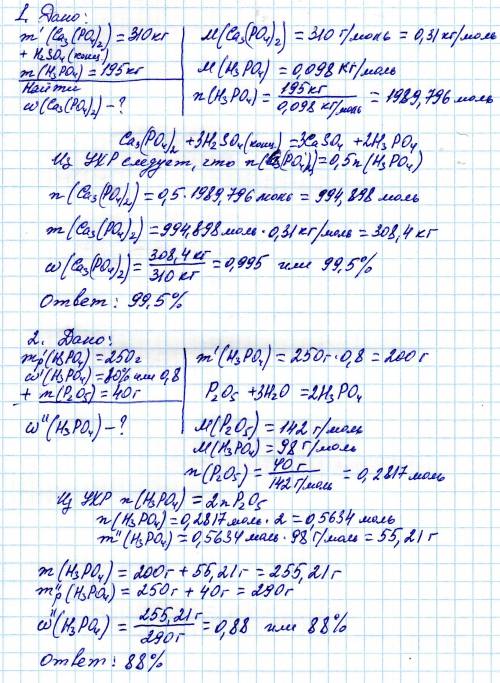 1. Дано:
m'(Ca₃(PO₄)₂) = 310 кг
+ H₂SO₄ (конц)
m(H₃PO₄) = 195 кг
Найти
ω(Ca₃(PO₄)₂) - ?
M(Ca₃(PO₄)₂) = 310 г/моль = 0,31 кг/моль
M(H₃PO₄) = 0,098 кг/моль
n(H₃PO₄) = 195 кг / 0,098 кг/моль = 1989,796 моль
Ca₃(PO₄)₂ + 3H₂SO₄ (конц) = 3CaSO₄ + 2H₃PO₄
Из УХР следует, что n(Ca₃(PO₄)₂) = 0,5n(H₃PO₄)
n(Ca₃(PO₄)₂) = 0,5 · 1989,796 моль = 994,898 моль
m(Ca₃(PO₄)₂) = 994,898 моль · 0,31 кг/моль = 308,4 кг
ω(Ca₃(PO₄)₂) = 308,4 кг / 310 кг = 0,995 или 99,5%
Ответ: 99,5%
2. Дано:
m'р(H₃PO₄) = 250 г
ω'(H₃PO₄) = 80% или 0,8
+ m(P₂O₅) = 40 г
ω''(H₃PO₄) - ?
m'(H₃PO₄) = 250 г · 0,8 = 200 г
P₂O₅ + 3H₂O = 2H₃PO₄
M(P₂O₅) = 142 г/моль
M(H₃PO₄) = 98 г/моль
n(P₂O₅) = 40 г / 142 г/моль = 0,2817 моль
Из УХР n(H₃PO₄) = 2n P₂O₅
n(H₃PO₄) = 0,2817 моль · 2 = 0,5634 моль
m''(H₃PO₄) = 0,5634 моль · 98 г/моль = 55,21 г
m(H₃PO₄) = 200 г + 55,21 г = 255,21 г
m''р(H₃PO₄) = 250 г + 40 г = 290 г
ω''(H₃PO₄) = 255,21 г / 290 г = 0,88 или 88%
Ответ: 88%